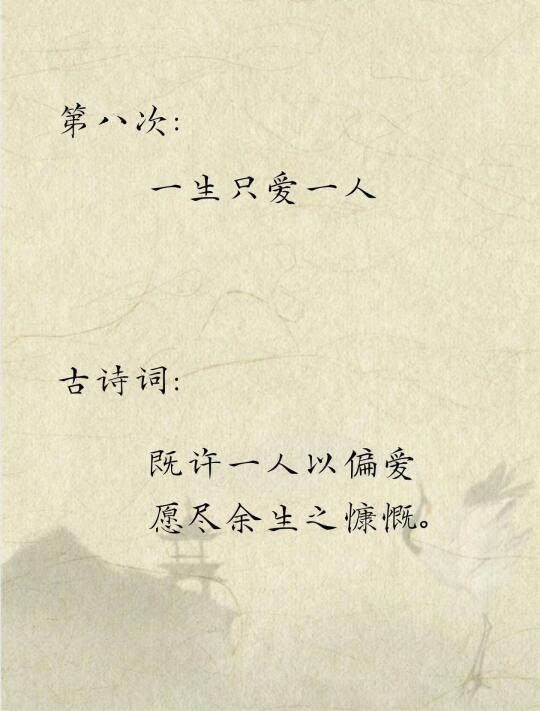 第八次:
一生只爱一人
古诗词:
既许一人以偏爱
愿尽余生之慷慨。